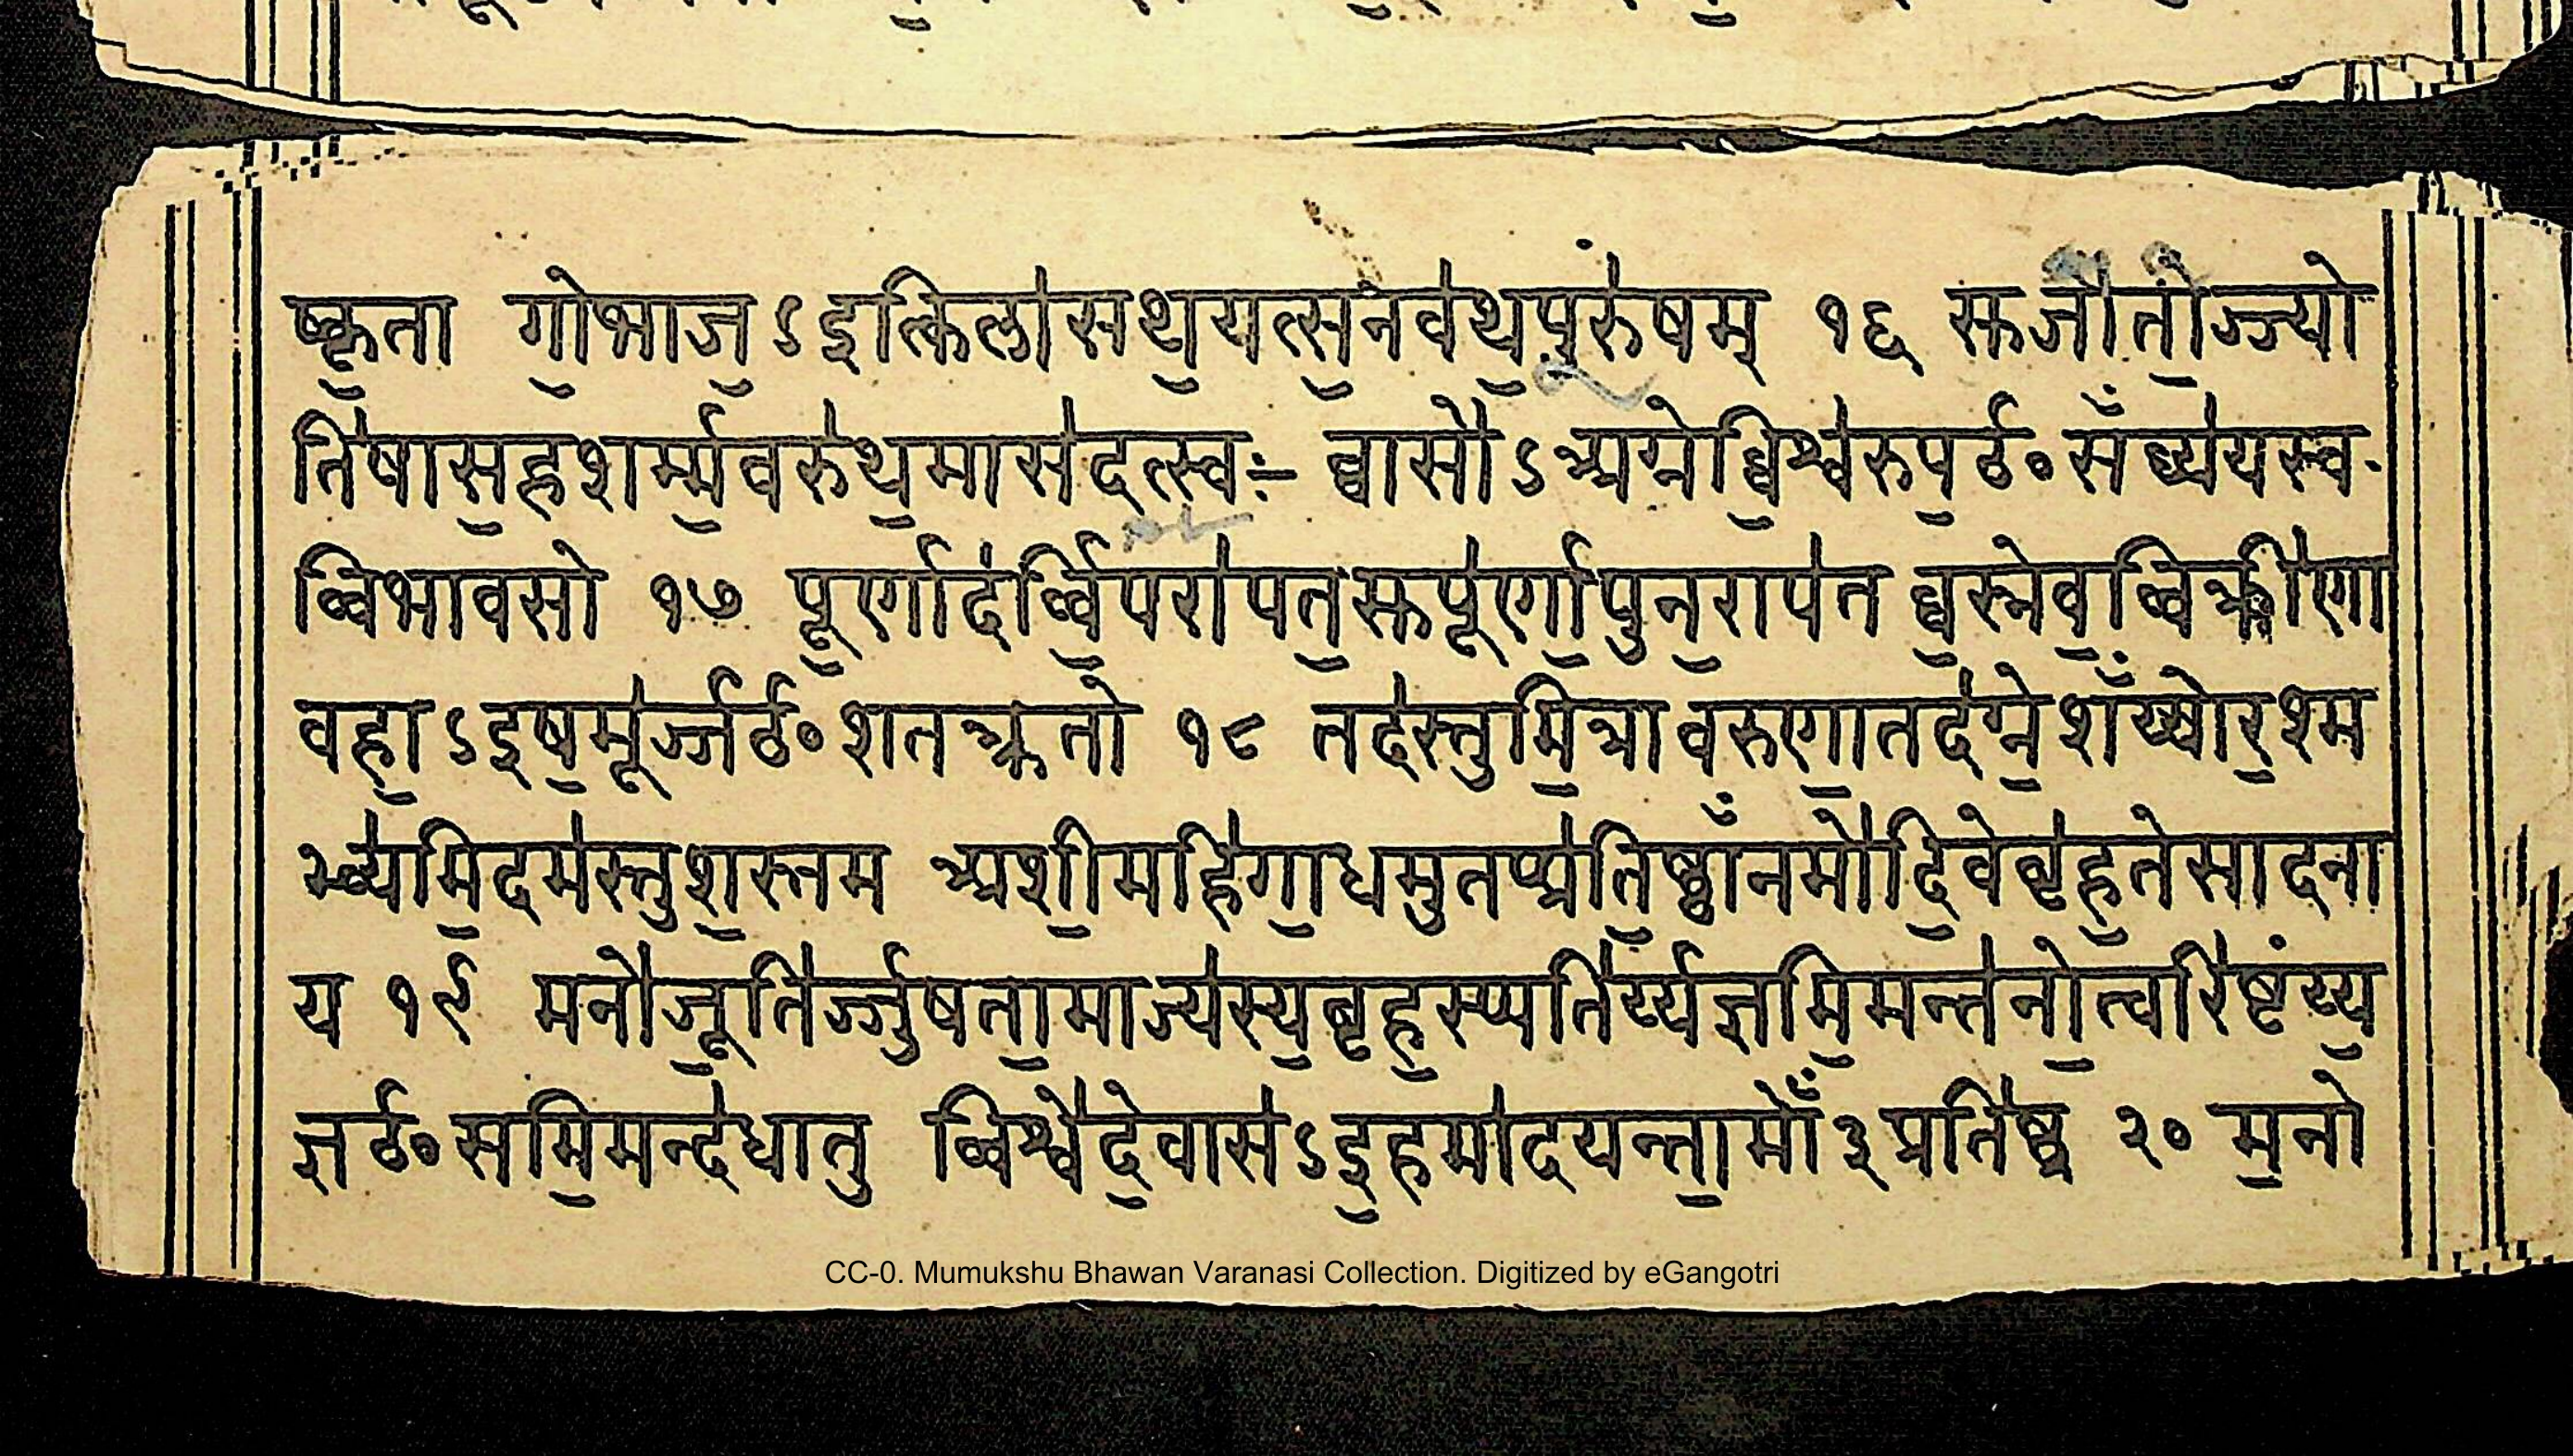 ष्कृ॒ता गो॒भाज॒ऽइत्किला॑सथ॒यत्स॒नव॑थ॒पूरु॑षम् १६ सुजा॑तो॒ज्ज्यो
ति॑षास॒हशर्म्म॒वरू॑थ॒मास॑दत्स्वः॑ व्वासो॑ऽअग्ने व्वि॒श्वरु॑प॒ᳪसँव्य॑यस्व
व्विभावसो १७ पू॒र्णाद॑र्व्वि॒परा॑पत॒सुपू॑र्णा॒पुन॒राप॑त व्व॒स्नेव॒व्विक्क्री॑णा
वहा॒ऽइष॒मूर्ज्ज॑ᳪशतक्क्रतो १८ तद॑स्तुमि॒त्रावरुणा॒तद॑ग्ने॒शँय्योर॒श्म
भ्य॑मि॒दम॑स्तुश॒स्तम अ॒शी॒महि॑गा॒धमु॒तप्प्र॑ति॒ष्ठाँनमो॑दि॒वेबृ॑ह॒तेसादना
य १९ मनो॑जू॒तिर्ज्जु॑षता॒माज्य॑स्य॒बृह॒स्प्पति॑र्य्यज्ञमि॒मन्त॑नो॒त्वरि॑ष्टंय्य॒
ज्ञᳪसमि॒मन्द॑धातु व्विश्वे॑दे॒वास॑ऽइ॒हमा॑दयन्ता॒मोँ३प्रति॑ष्ठ २० म॒नो
CC-0. Mumukshu Bhawan Varanasi Collection. Digitized by eGangotri